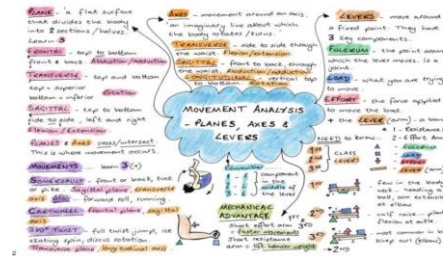 PLANE - a flat surface
that divides the body
into 2 sections/halves.
Learn 3
FRONTAL - top to bottom
front & back Abduction/adduction
TRANSVERSE - top and bottom
top = superior
bottom = inferior Rotation
SAGITTAL - top to bottom
side to side, left and right
Flexion/Extension
PLANES & AXES cross/intersect
This is where movement occurs.
MOVEMENTS - learn 3
SOMERSAULT - front or back, tuck
or pike. Sagittal plane, transverse
axis Also forward roll, running.
CARTWHEEL frontal plane, sagittal
axis
360° TWIST - full twist jump, ice
skating spin, discus rotation.
Transverse plane, longitudinal axis
AXES - movement around an axis.
- an imaginary line about which
the body rotates/turns.
TRANSVERSE - side to side through
the waist, Flexion/Extension
SAGITTAL - front to back, through
the waist, Abduction/adduction
LONGITUDINAL - vertical top
to bottom Rotation
MOVEMENT ANALYSIS
- PLANES, AXES &
LEVERS
Remember
component
in the
middle of
the level
MECHANICAL
ADVANTAGE
Short effort arm 3RD
= faster movements
Short resistance
arm = lift heavier weight
2ND
LEVERS - move around
a fixed point. They have
3 key components.
FULCRUM - the point around
which the lever moves. is a
point.
LOAD - what you are trying
to move.
EFFORT - the force applied
to move the load.
+ the LEVER (arm) - a bone
NEED to know
1 - Resistance
2 - Effort Arm
3 CLASS
LEVERS
FULCRUM
LOAD
EFFORT
LEVER (arm)
1ST
2ND
3RD
few in the body
neck - heading a
ball, arm extension
at elbow
half raise - plantar
flexion at ankle
most common in body
bicep curl (elbow)